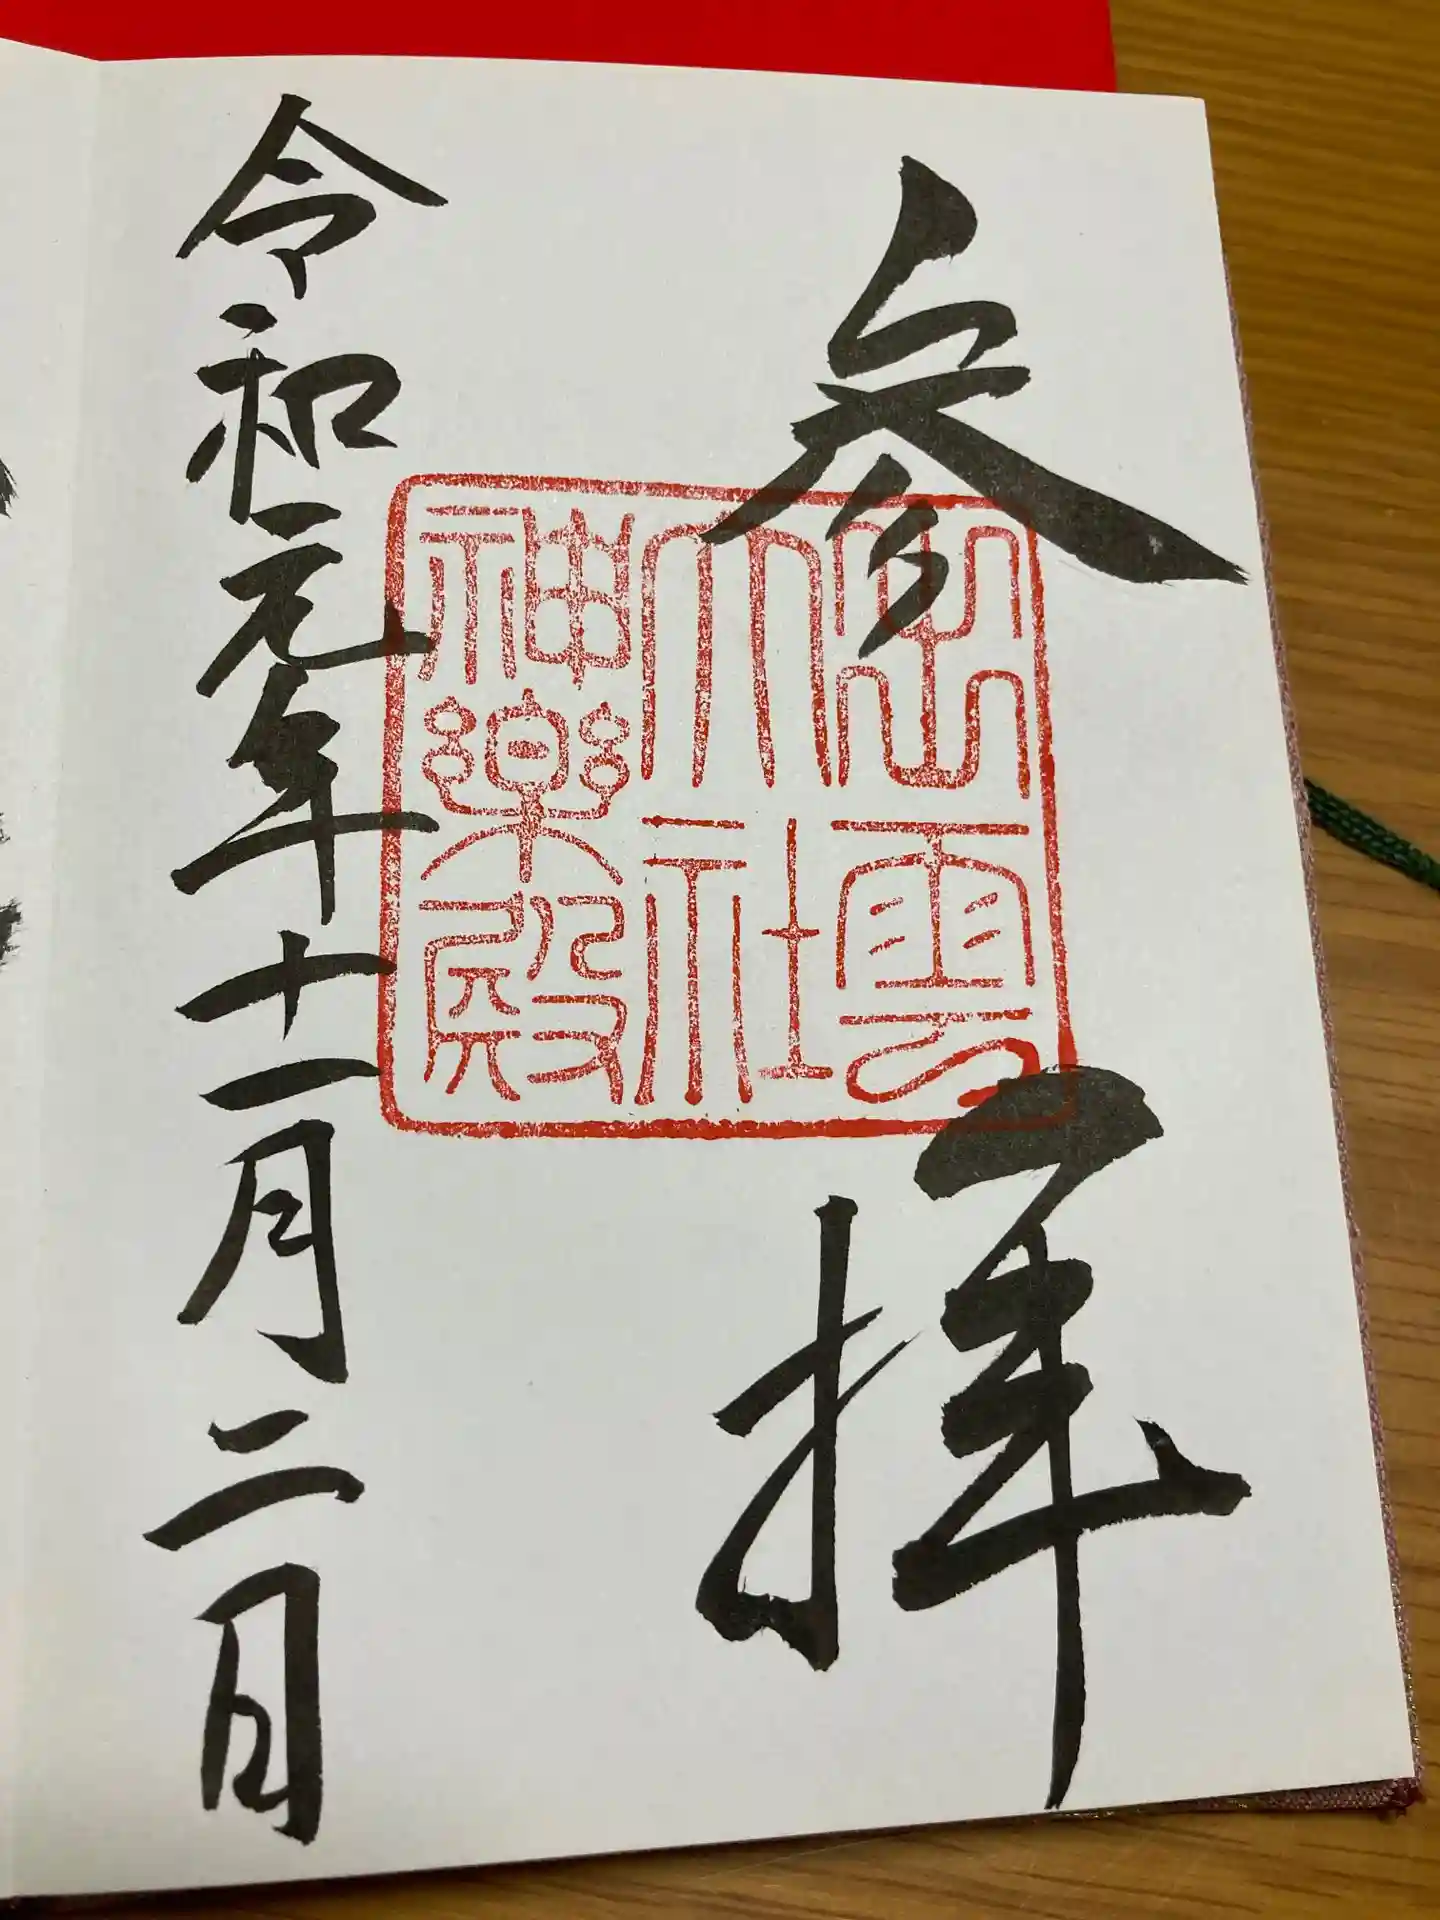 参拝
出雲
大社
神楽殿
令和元年十一月二日